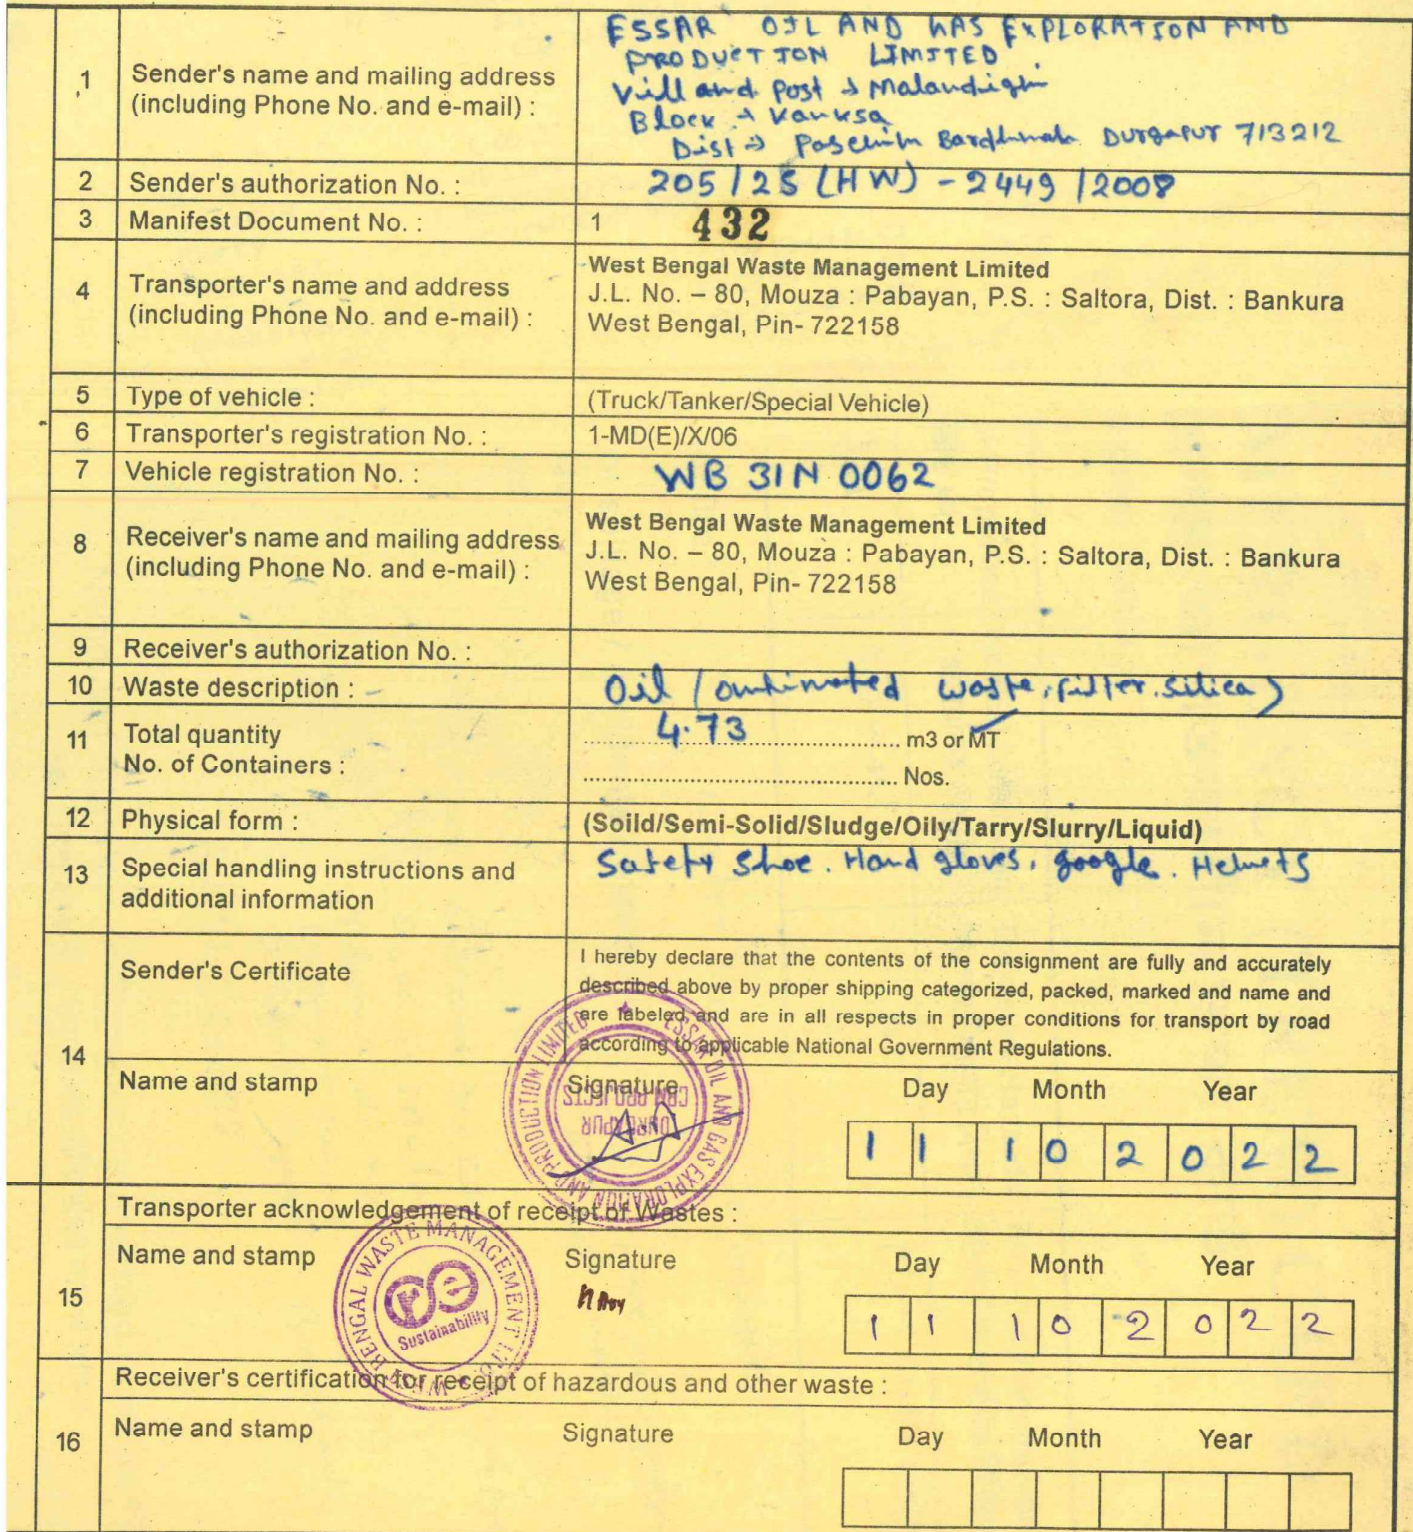 1
Sender's name and mailing address
(including Phone No. and e-mail) :
ESSAR OIL AND GAS EXPLORATION AND
PRODUCTION LIMITED
Vill and Post → Malandighi
Block → Kanksa
Dist → Paschim Bardhman Durgapur 713212
2 Sender's authorization No. : 205/2S (HW) - 2449/2008
3 Manifest Document No. : 1 432
4
Transporter's name and address
(including Phone No. and e-mail) :
West Bengal Waste Management Limited
J.L. No. – 80, Mouza : Pabayan, P.S. : Saltora, Dist. : Bankura
West Bengal, Pin- 722158
5 Type of vehicle : (Truck/Tanker/Special Vehicle)
6 Transporter's registration No. : 1-MD(E)/X/06
7 Vehicle registration No. : WB 31N 0062
8
Receiver's name and mailing address
(including Phone No. and e-mail) :
West Bengal Waste Management Limited
J.L. No. – 80, Mouza : Pabayan, P.S. : Saltora, Dist. : Bankura
West Bengal, Pin- 722158
9 Receiver's authorization No. :
10 Waste description : Oil ( waste, filter. silica)
11
Total quantity 4.73 m3 or MT ✓
No. of Containers : Nos.
12 Physical form : (Soild/Semi-Solid/Sludge/Oily/Tarry/Slurry/Liquid)
13
Special handling instructions and
additional information
Safety Shoe. Hand gloves. google. Helmets
14
Sender's Certificate
I hereby declare that the contents of the consignment are fully and accurately
described above by proper shipping categorized, packed, marked and name and
are labeled and are in all respects in proper conditions for transport by road
according to applicable National Government Regulations.
Name and stamp Signature Day Month Year
ESSAR OIL AND GAS EXPLORATION AND PRODUCTION LIMITED ★
CBM PROJECTS
DURGAPUR
1 1 1 0 2 0 2 2
15
Transporter acknowledgement of receipt of Wastes :
Name and stamp Signature Day Month Year
WEST BENGAL WASTE MANAGEMENT LTD. ★
re
Sustainability
1 1 1 0 2 0 2 2
16
Receiver's certification for receipt of hazardous and other waste :
Name and stamp Signature Day Month Year